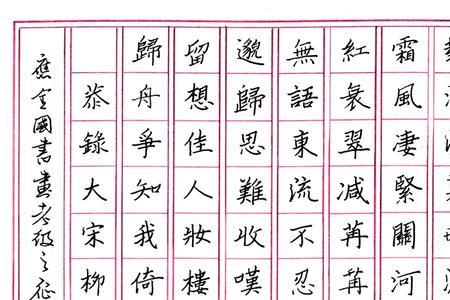 霜風凄緊關河
紅衰翠减苒苒
無語東流不忍
邈歸思難收嘆
留想佳人妝樓
歸舟爭知我倚
恭錄大宋柳
應全國書畫考級之征